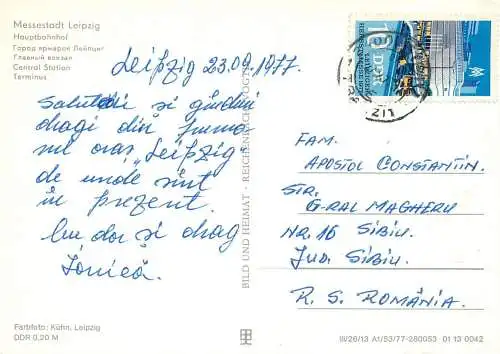 Messestadt Leipzig
Hauptbahnhof
Город ярмарок Лейпциг
Главный вокзал
Central Station
Terminus
Leipzig 23.09.1977
Salutări si gînduri
dragi din frumo
sul oras "Leipzig
de unde sînt
în prezent.
Cu dor si drag
Ionică
BILD UND HEIMAT · REICHENBACH (VOGTL)
16 DDR
LIZ
FAM.
APOSTOL CONSTANTIN.
STR.
G-RAL MAGHERU
NR. 16 SIBIU.
JUD. SIBIU.
R. S. ROMÂNIA.
Farbfoto: Kühn, Leipzig
DDR 0,20 M
III/26/13 At/53/77-280053 01 13 0042